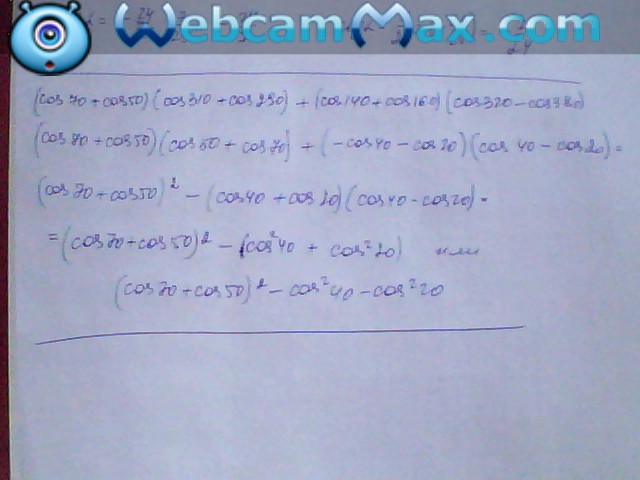 WebcamMax.com
(cos 70 + cos 50) (cos 310 + cos 290) + (cos 140 + cos 160) (cos 320 - cos 380)
(cos 70 + cos 50) (cos 50 + cos 70) + (- cos 40 - cos 20) (cos 40 - cos 20) =
(cos 70 + cos 50)² - (cos 40 + cos 20) (cos 40 - cos 20) =
= (cos 70 + cos 50)² - (cos² 40 + cos² 20) или
(cos 70 + cos 50)² - cos² 40 - cos² 20